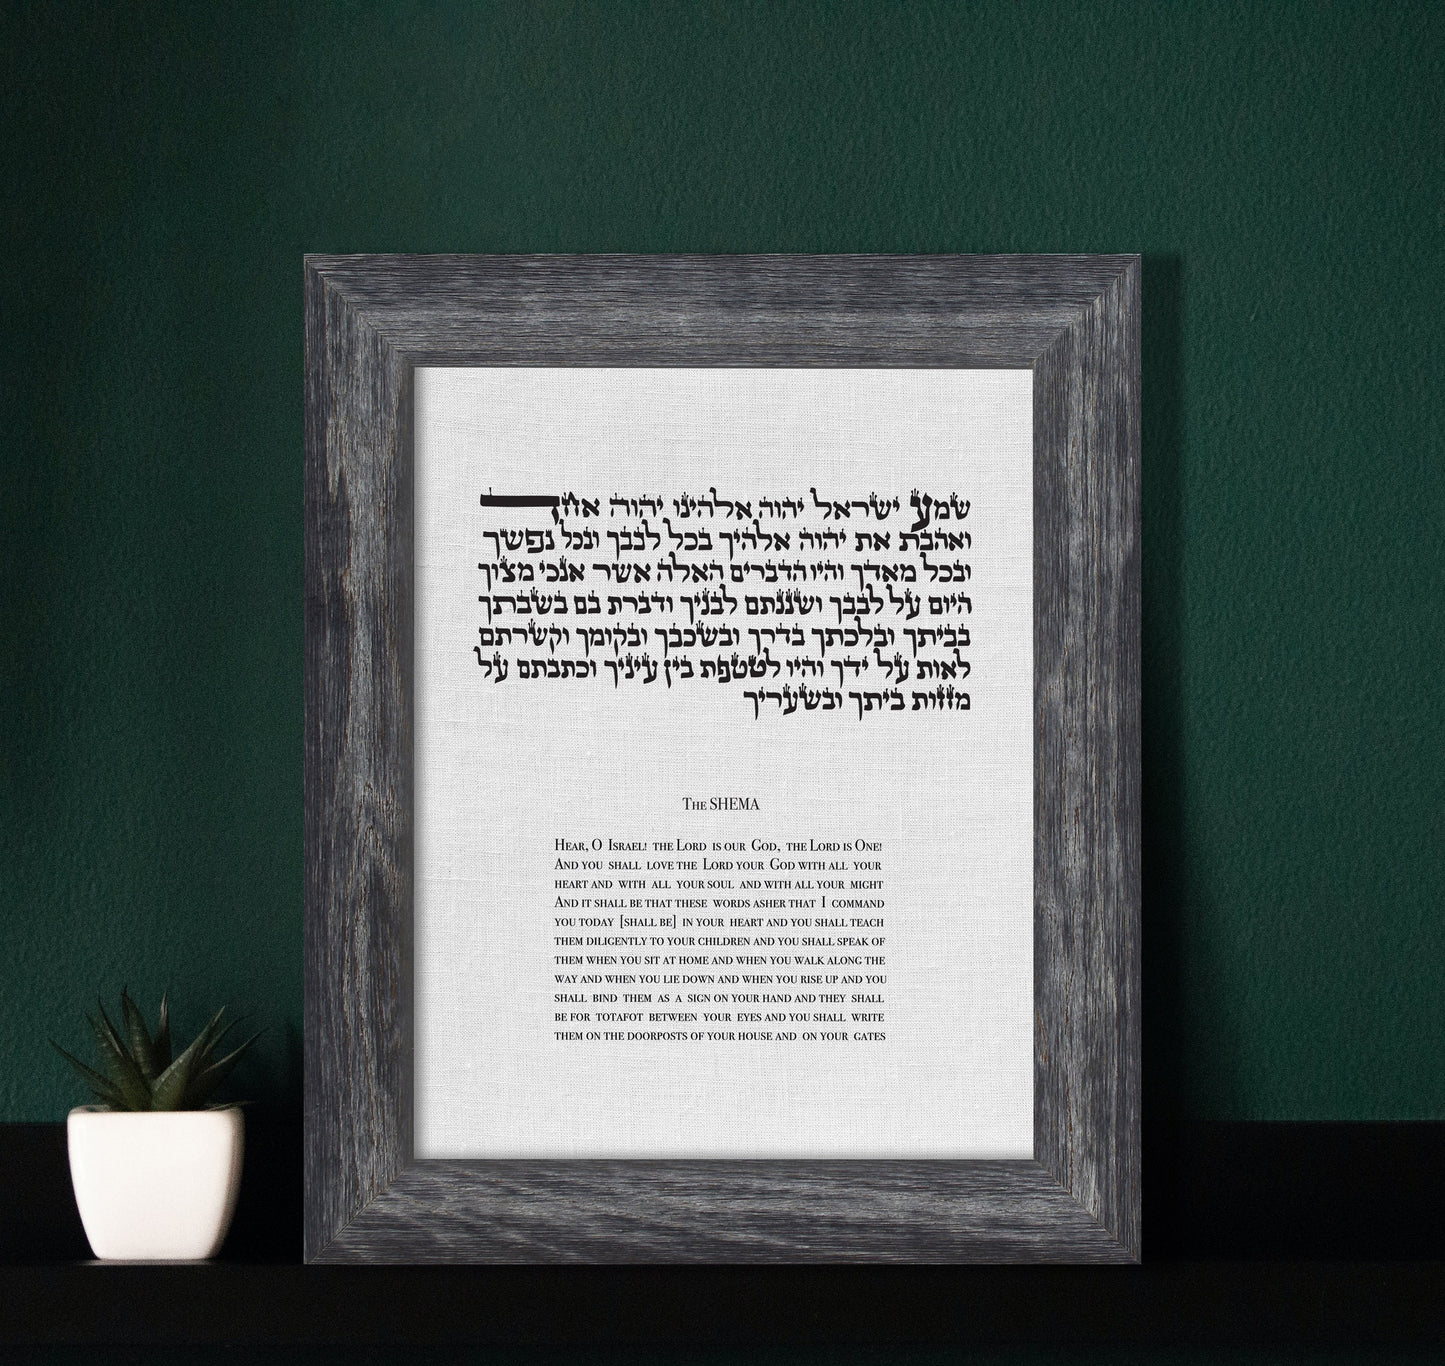 שמע ישראל יהוה אלהינו יהוה אחד
ואהבת את יהוה אלהיך בכל לבבך ובכל נפשך
ובכל מאדך והיו הדברים האלה אשר אנכי מצוך
היום על לבבך ושננתם לבניך ודברת בם בשבתך
בביתך ובלכתך בדרך ובשכבך ובקומך וקשרתם
לאות על ידך והיו לטטפת בין עיניך וכתבתם על
מזזות ביתך ובשעריך
The SHEMA
Hear, O Israel! the Lord is our God, the Lord is One!
And you shall love the Lord your God with all your
heart and with all your soul and with all your might
And it shall be that these words asher that I command
you today [shall be] in your heart and you shall teach
them diligently to your children and you shall speak of
them when you sit at home and when you walk along the
way and when you lie down and when you rise up and you
shall bind them as a sign on your hand and they shall
be for totafot between your eyes and you shall write
them on the doorposts of your house and on your gates